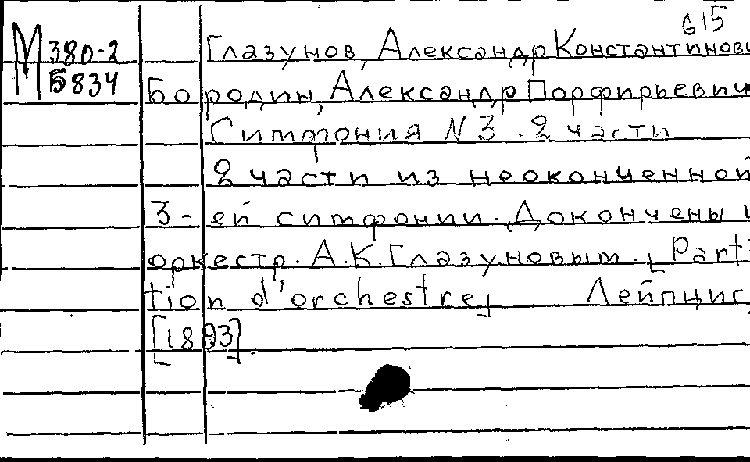 615
М 380-2 Глазунов, Александр Константинови
Б834 Бородин, Александр Порфирьевич
Симфония N 3. 2 части
2 части из неоконченной
3-ей симфонии. Докончены и
оркестр. А.К. Глазуновым. [Parti
tion d'orchestre] Лейпциг,
[1893].